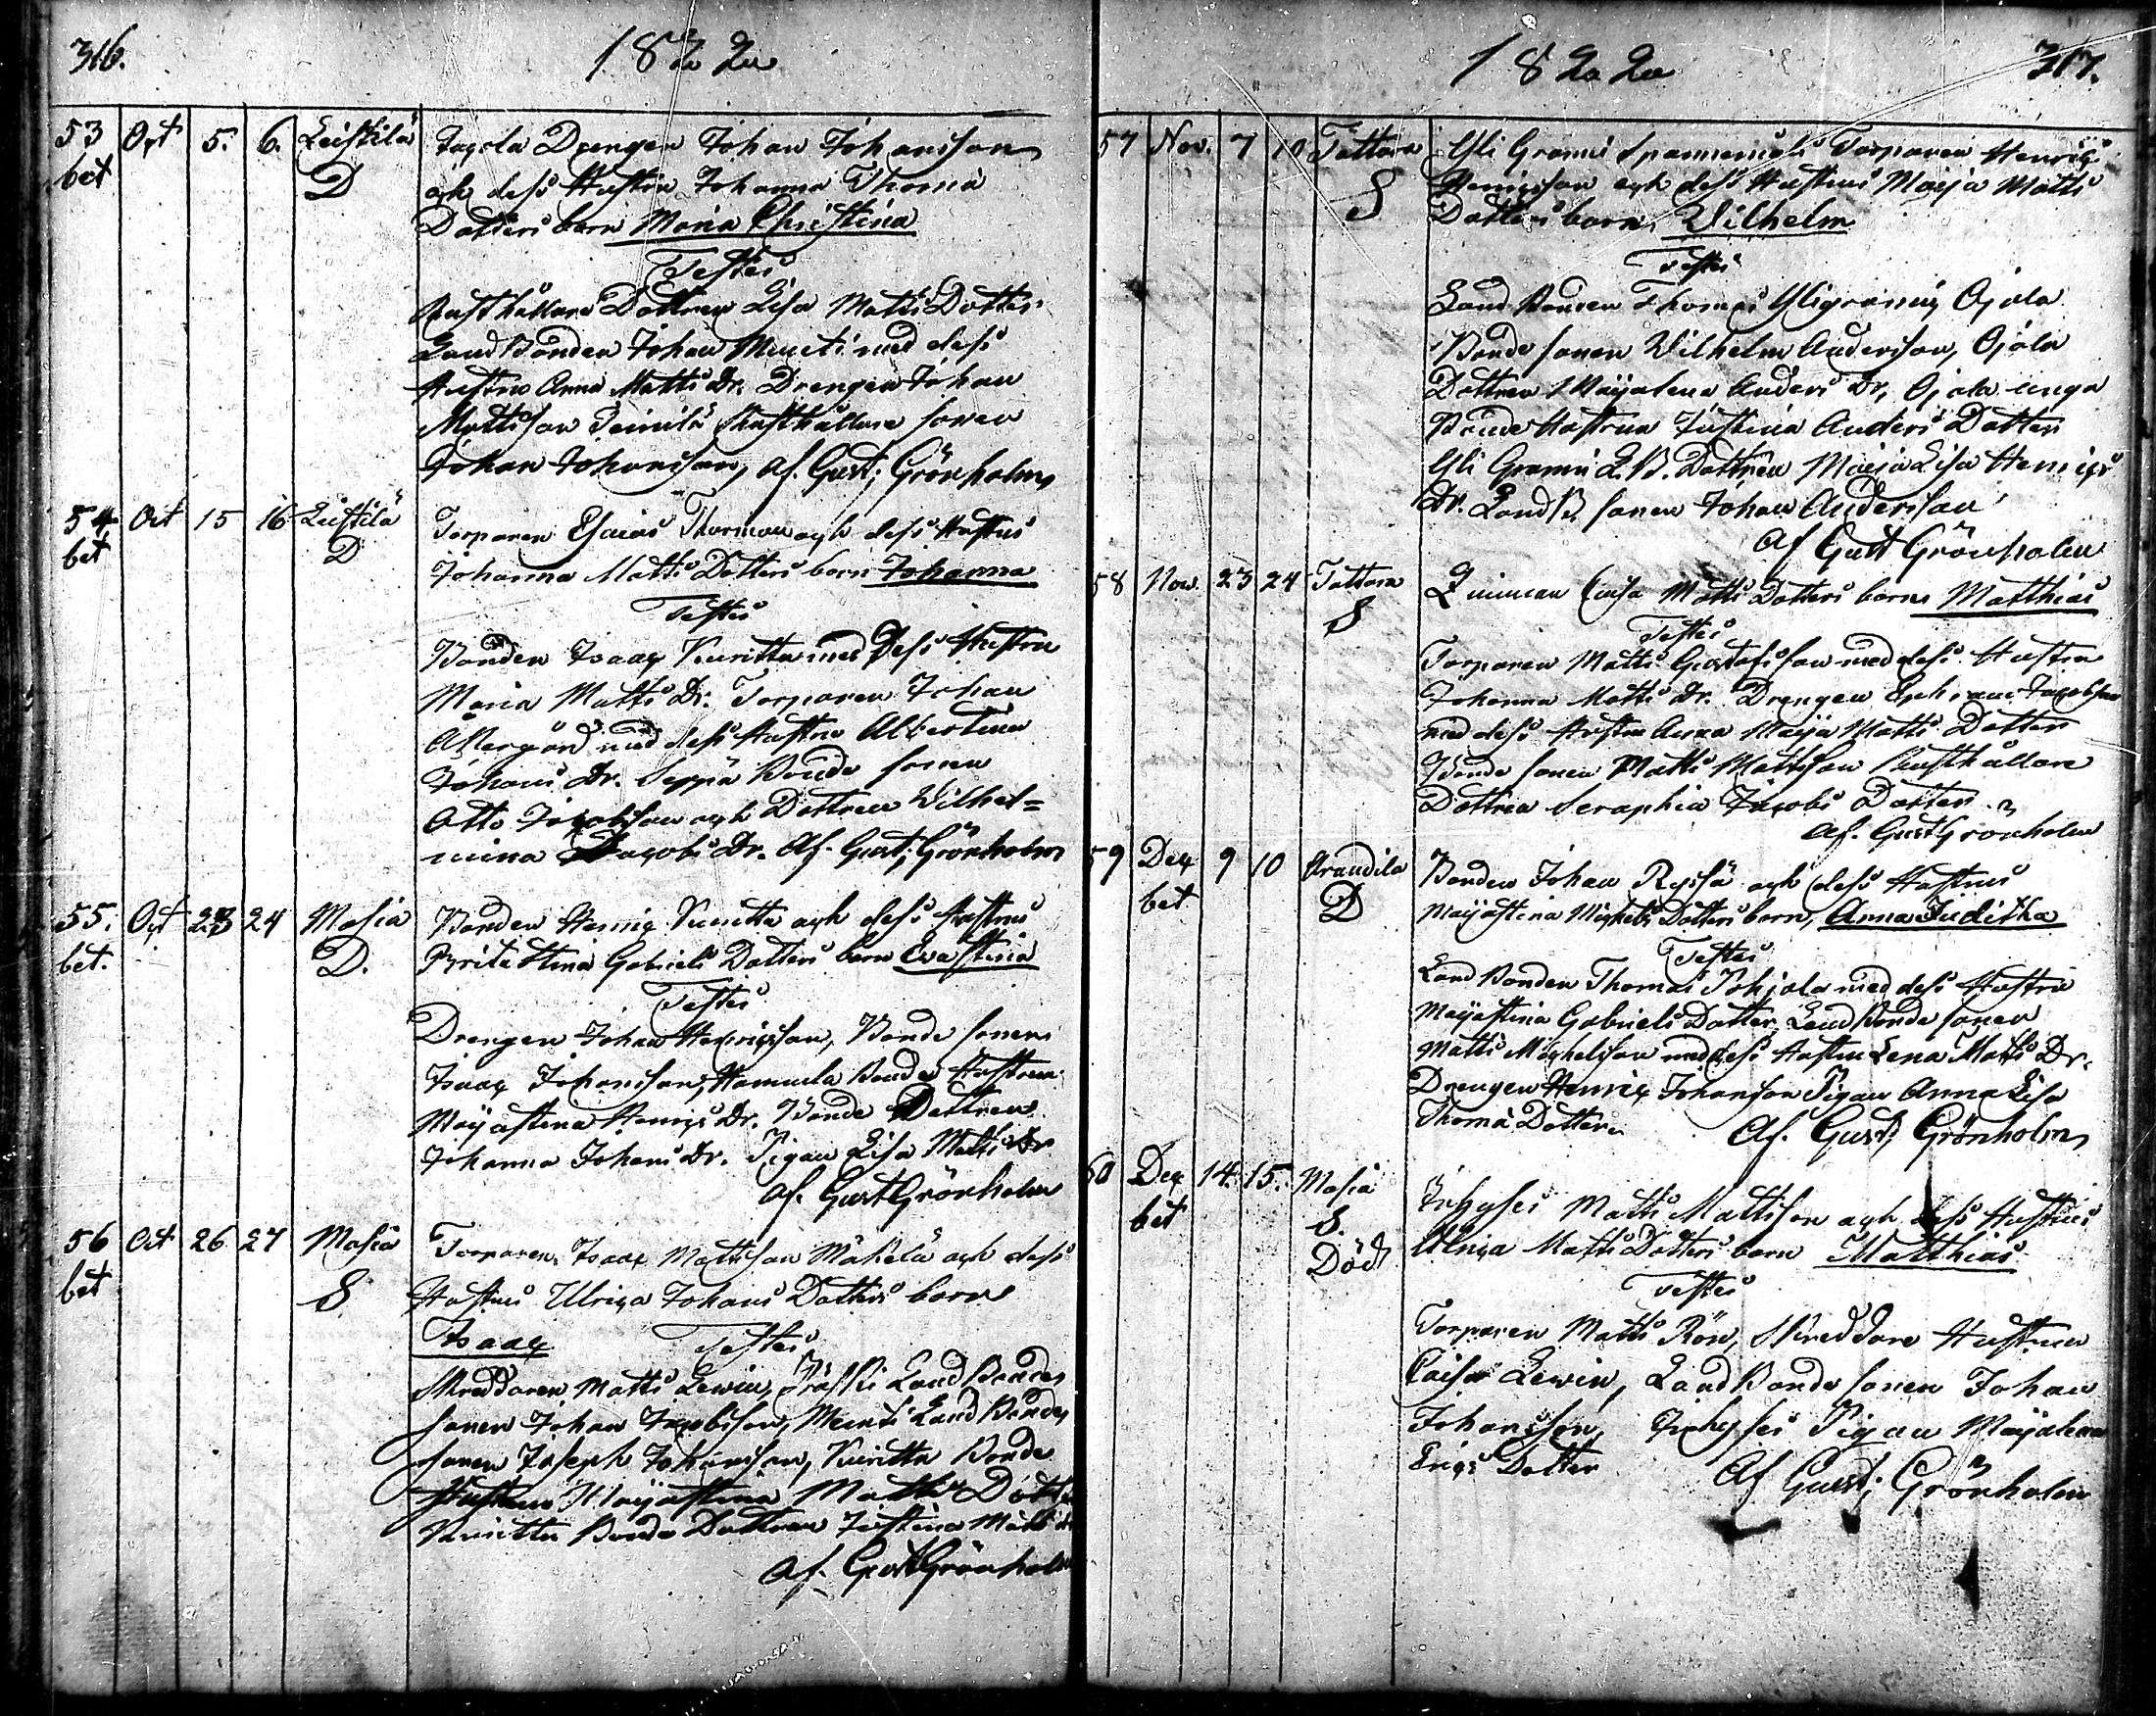 316.
1822
53 Oct 5. 6. Leistilä Jacola Drengen Johan Johansson
bet D och dess Hustru Johanna Thomæ
Dotters barn Maria Christina
Testes
Rusthållare Dottren Lisa Matts Dotter
Land Bonden Johan Muntti med dess
Hustru Anna Matts Dr. Drengen Johan
Mattsson Rusthållare sonen
Johan Johansson, af. Gust; Grönholm
54 Oct 15 16 Leistilä Torparen Esaias Thorman och dess Hustrus
bet D Johanna Matts Dotters barn Johanna
Testes
Bonden Isaac Kuritta med Dess Hustru
Maria Matts Dr. Torparen Johan
Åkergård med dess Hustru Albertina
Johans Dr. Seppä Bonde sonen
Otto Jacobsson och Dottren Wilhel=
mina Jacobs Dr. Af. Gust; Grönholm
55. Oct 23 24 Masia Bonden Henric Kuritta och dess Hustrus
bet. D. Brita Stina Gabriels Dotters barn Eva Stina
Testes
Drengen Johan Henricsson, Bonde sonen
Isaac Johansson, Hamula Bonde Hustrun
Majastina Henrics Dr. Bonde Dottren
Johanna Johans Dr. Pigan Lisa Matts Dr
af. Gust Grönholm
56 Oct 26 27 Masia Torparen Isaac Mattsson Mäkelä och dess
bet S Hustrus Ulrica Johans Dotters barn
Isaac Testes
Skreddaren Matts Lewin, Land Bonde
sonen Johan Jacobsson, Muntti Land Bonde
sonen Joseph Johansson, Kuritta Bonde
Hustrun Majastina Matts Dotter
Kuritta Bonde Dottren Justina Matts Dr
af. Gust Grönholm
1822
317.
57 Nov. 7 10 Tattara Yli Grannis Torparen Henric
S Henricsson och dess Hustrus Maija Matts
Dotters barn Wilhelm
Testes
Land Bonden Thomas Yligrannis, Ojala
Bonde sonen Wilhelm Andersson, Ojala
Dottren Majalena Anders Dr, Ojala unga
Bonde Hustrun Justina Anders Dotter
Yli Grannis L.B. Dottren Maja Lisa Henrics
Dr. Land B. sonen Johan Andersson
Af Gust Grönholm
58 Nov. 23 24 Tattara Qvinnan Caisa Matts Dotters barn Matthias
S Testes
Torparen Matts Gustafsson med dess Hustru
Johanna Matts Dr. Drengen Ephraim Jacobsson
med dess Hustru Anna Maija Matts Dotter
Bonde sonen Matts Mattsson Rusthållare
Dottren Seraphia Jacobs Dotter
af. Gust Grönholm
59 Dec 9 10 Arandila Bonden Johan Ryssä och dess Hustrus
bet D Majastina Michels Dotters barn, Anna Juditha
Testes
Land Bonden Thomas Pohjala med dess Hustru
Majastina Gabriels Dotter, Land Bonde sonen
Matts Michelsson med dess Hustru Lena Matts Dr.
Drengen Henric Johansson Pigan Anna Lisa
Thomæ Dotter. Af. Gust; Grönholm
60 Dec 14. 15. Masia Inhyses Matts Mattsson och dess Hustrus
bet S. Ulrica Matts Dotters barn Matthias
Död Testes
Torparen Matts Rön, Skreddare Hustrun
Caisa Lewin, Land Bonde sonen Johan
Johansson, Inhyses Pigan Majalena
Erics Dotter Af Gust; Grönholm